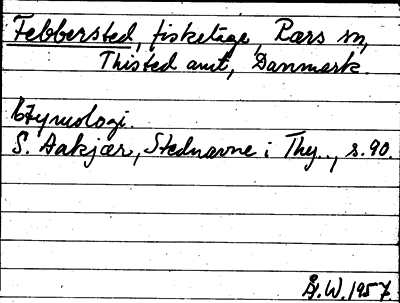 Febbersted, fisketige, Ræs sn,
Thisted amt, Danmark.
Etymologi.
S. Aakjær, Stednavne i Thy.., s. 90.
Å.W. 1957